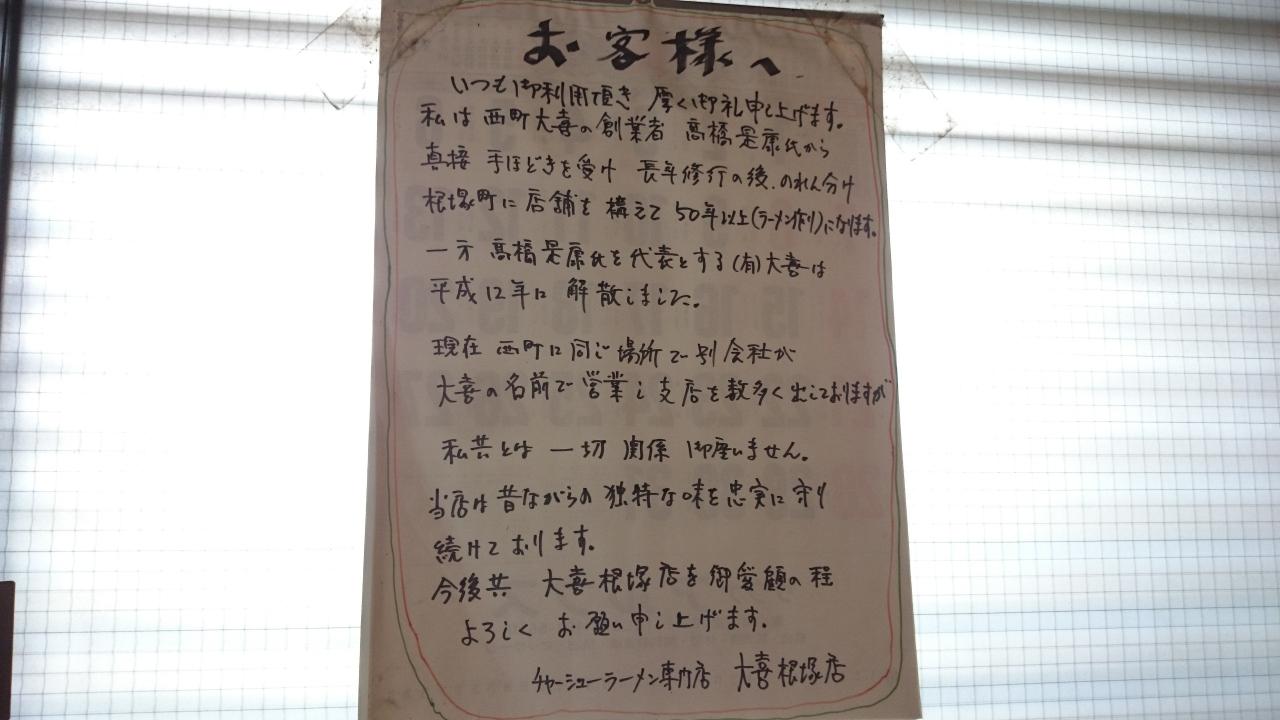 お客様へ
いつも御利用頂き 厚く御礼申し上げます。
私は 西町大喜の創業者 高橋是康氏から
真接 手ほどきを受け 長年修行の後、のれん分け
根塚町に店舗を 構えて 50年以上(ラーメン作り)になります。
一方 高橋是康氏を代表とする(有)大喜は
平成12年に 解散しました。
現在 西町に同じ場所で別会社が
大喜の名前で営業し支店を数多く出しておりますが
私共とは 一切 関係 御座いません。
当店は昔ながらの 独特な味を忠実に守り
続けております。
今後共 大喜根塚店を御愛顧の程
よろしく お願い申し上げます。
チャーシューラーメン専門店 大喜根塚店